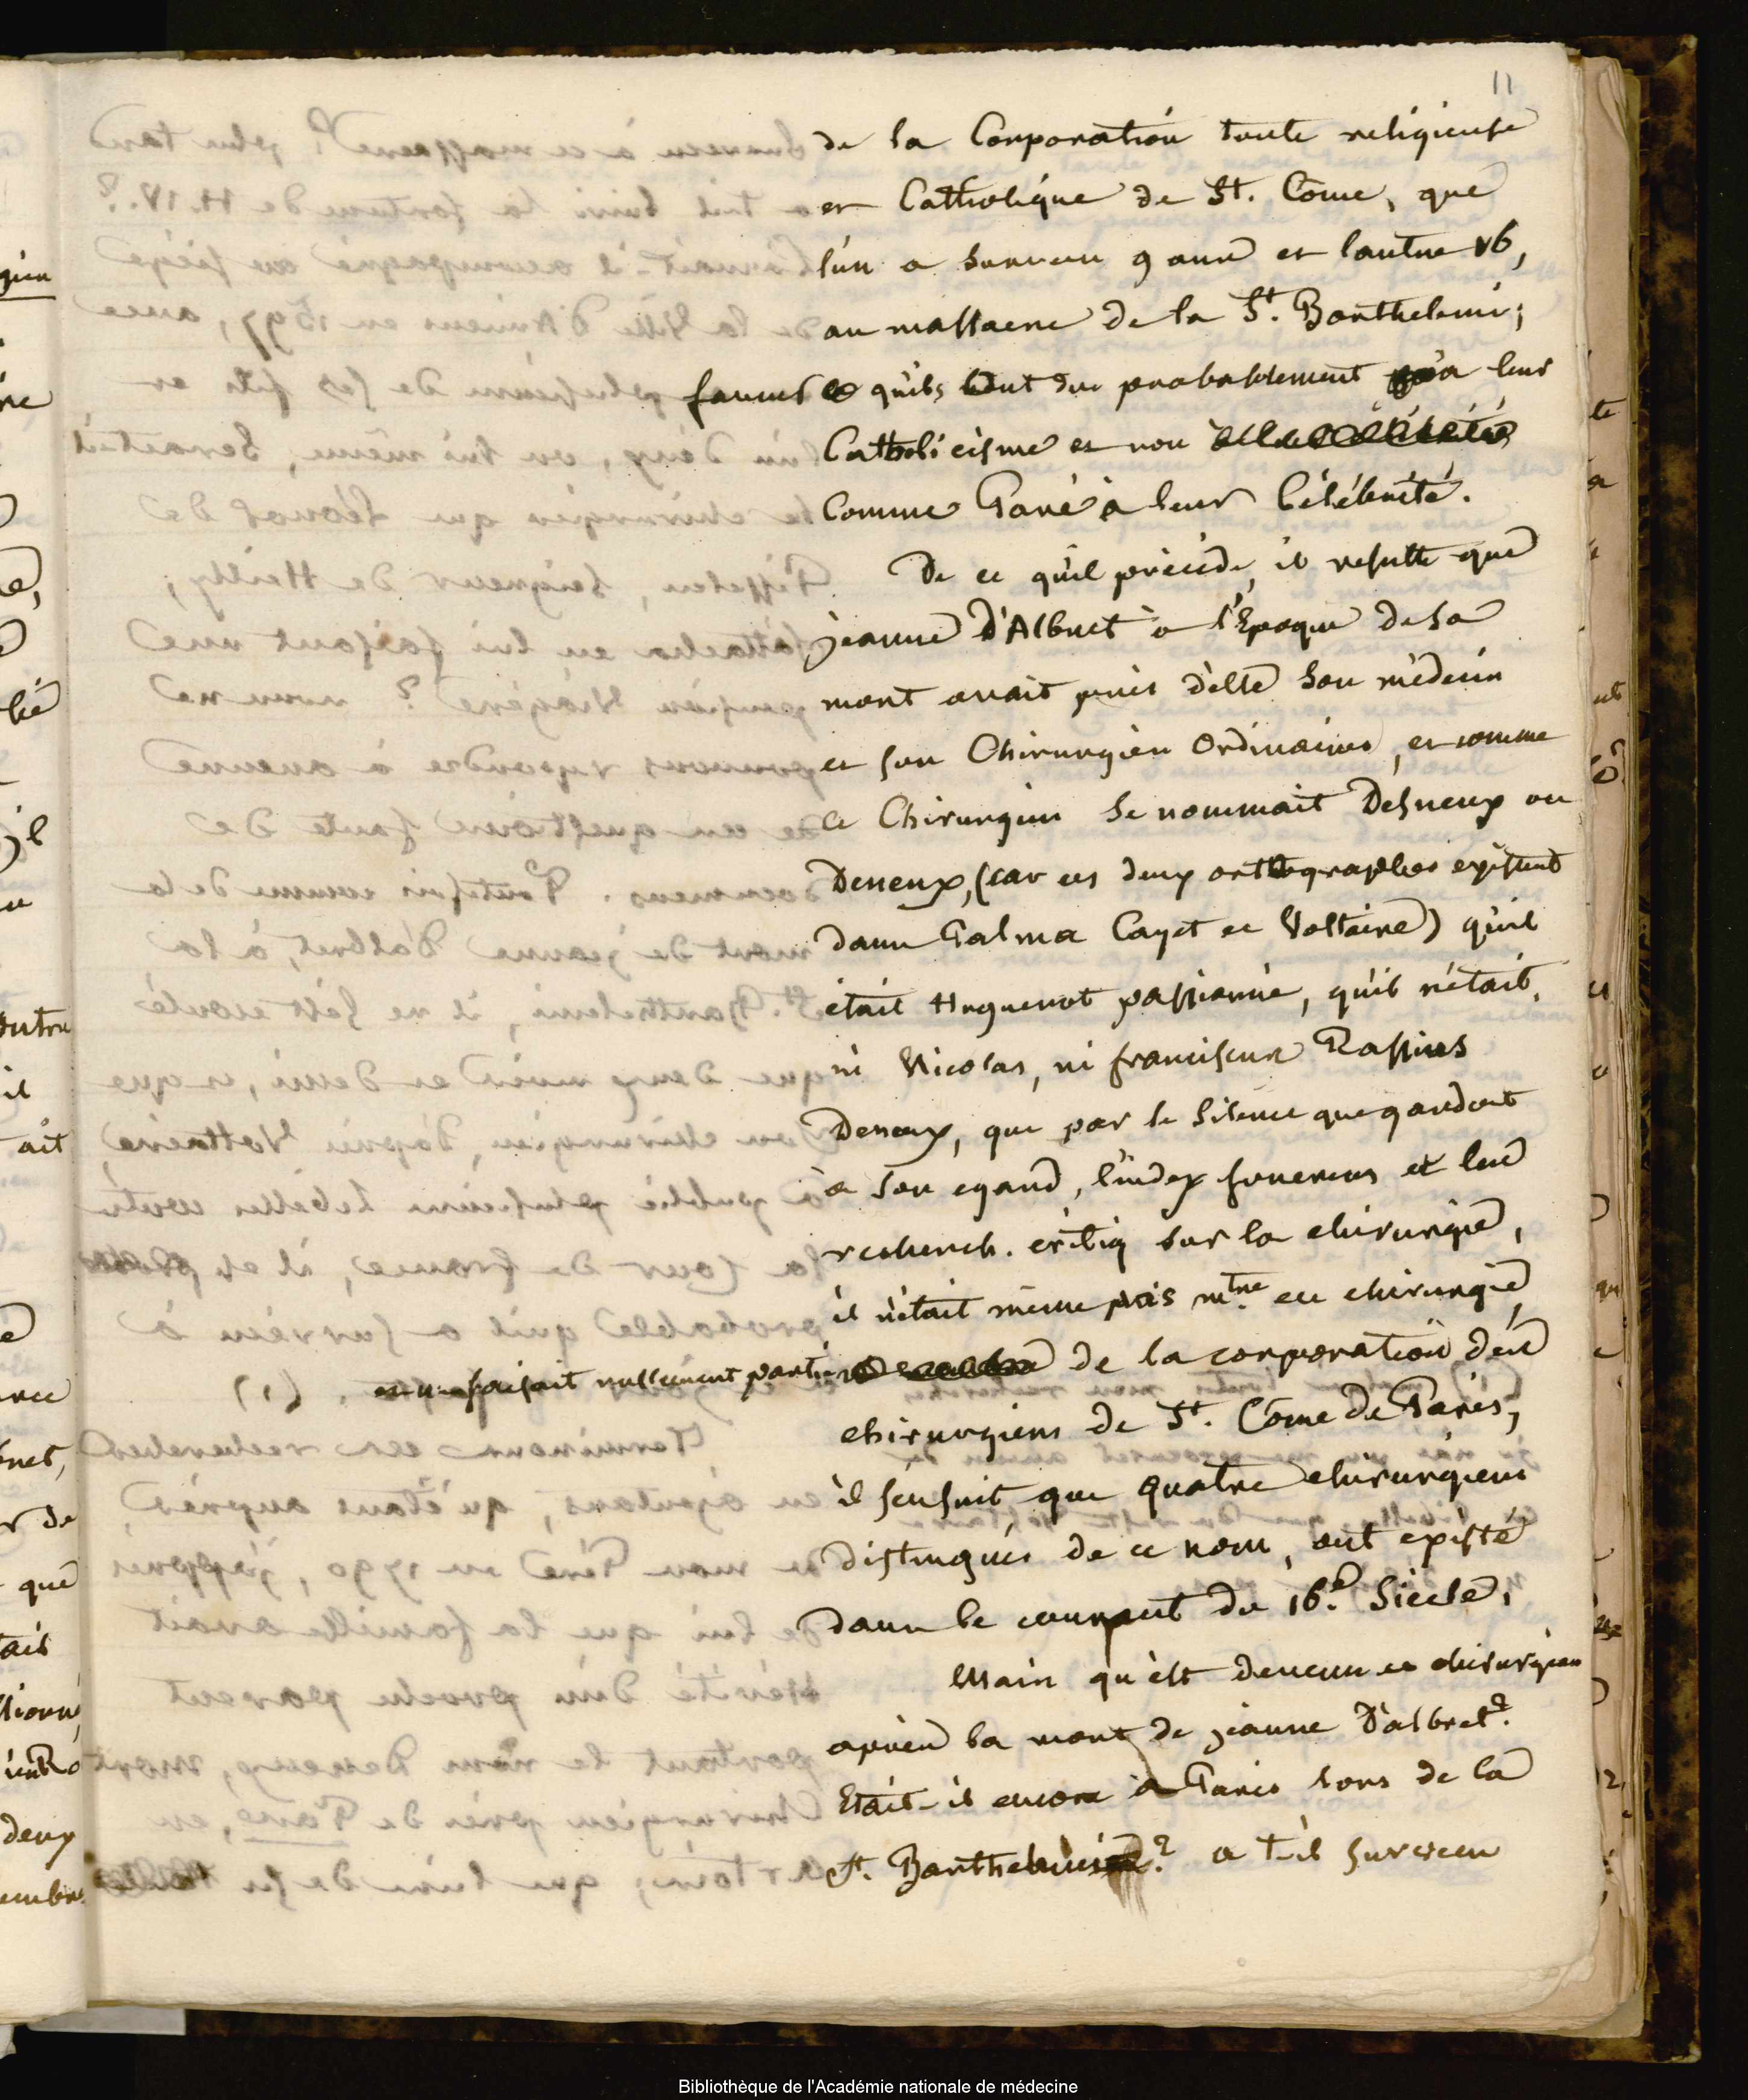 11
de la Corporation toute religieuse
et Catholique de St. Côme, que
l'un a survecu 9 anns et lautre 16,
au massacre de la St. Barthelemi;
faveur qu'ils ont du probablement a leur
Catholicisme et non
comme Paré à leur Célébrité.
De ce qu'il précède, il resulte que
jeanne D'Albret à l'Epoque de sa
mort avait près d'elle son médecin
et son Chirurgien Ordinaires, et comme
ce Chirurgien se nommait Desneux ou
Deneux, (car ces deux orthographes existent
dans Palma Cayet et Voltaire) qu'il
était Huguenot passionné, qu'il n'était,
ni Nicolas, ni franciscus Rassius
Deneux, que par le silence que gardent
a son egard, l'index funereus et les
recherch. critiq sur la chirurgie,
il n'était même pas mtre en chirurgie,
et ne faisait nullement partie de la corporation des
chirurgiens de St. Côme de Paris,
il s'ensuit que quatre chirurgiens
distingués de ce nom, ont existé
dans le courant du 16.e Siècle,
Mais qu'est devenu ce chirurgien
après la mort de jeanne D'albret?
Etait-il encore à Paris lors de la
St. Barthelemi? a t-il survecu
Bibliothèque de l'Académie nationale de médecine